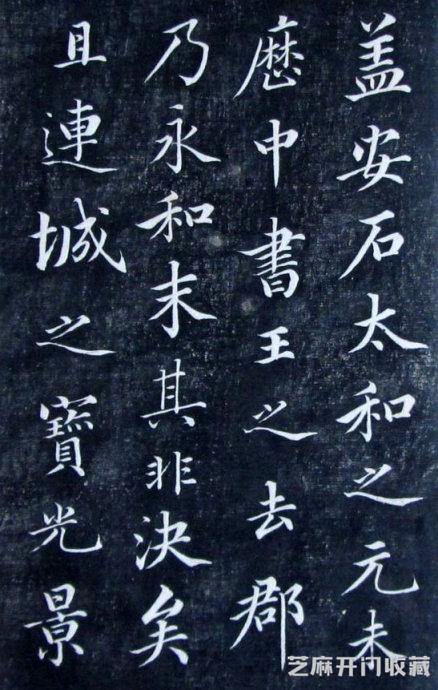 盖安石太和之元未
歴中書王之去郡
乃永和末其非决矣
且連城之寶光景
芝麻开门收藏